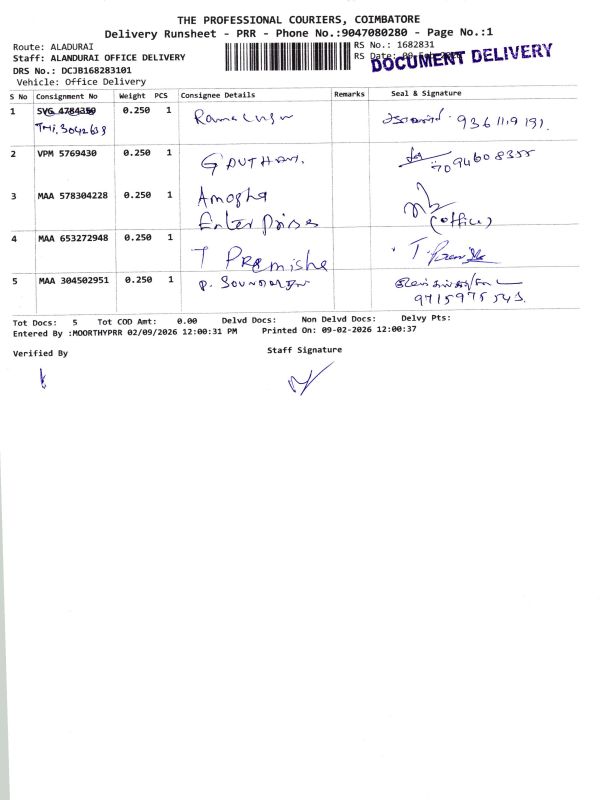 THE PROFESSIONAL COURIERS, COIMBATORE
Delivery Runsheet - PRR - Phone No.:9047080280 - Page No.:1
Route: ALADURAI
RS No.: 1682831
Staff: ALANDURAI OFFICE DELIVERY
RS Date:
DOCUMENT DELIVERY
DRS No.: DCJB168283101
Vehicle: Office Delivery
S No Consignment No Weight PCS Consignee Details Remarks Seal & Signature
1 SVG 4784350 0.250 1
TMI.3042633 9361119191.
2 VPM 5769430 0.250 1 GOUTHAM. 7094608355
3 MAA 578304228 0.250 1 Amogha
Enterprises (office)
4 MAA 653272948 0.250 1 T Premisha T.
5 MAA 304502951 0.250 1 P.
9715975543.
Tot Docs: 5 Tot COD Amt: 0.00 Delvd Docs: Non Delvd Docs: Delvy Pts:
Entered By :MOORTHYPRR 02/09/2026 12:00:31 PM Printed On: 09-02-2026 12:00:37
Verified By
Staff Signature